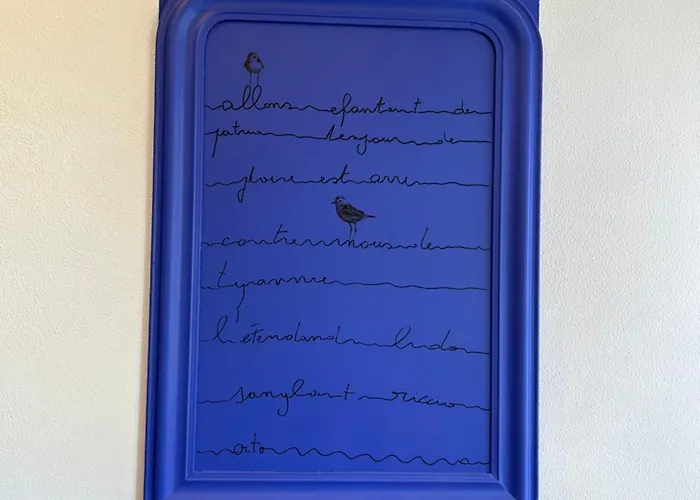 allons efantant de
patria lesjour de
gloire est arri
contre nous de
tyrannie
l'étendand
sanglant